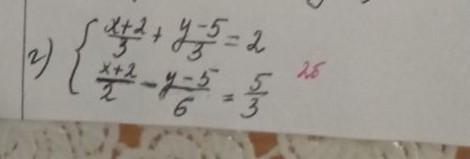 г) { (x+2)/3 + (y-5)/3 = 2
(x+2)/2 - (y-5)/6 = 5/3 25